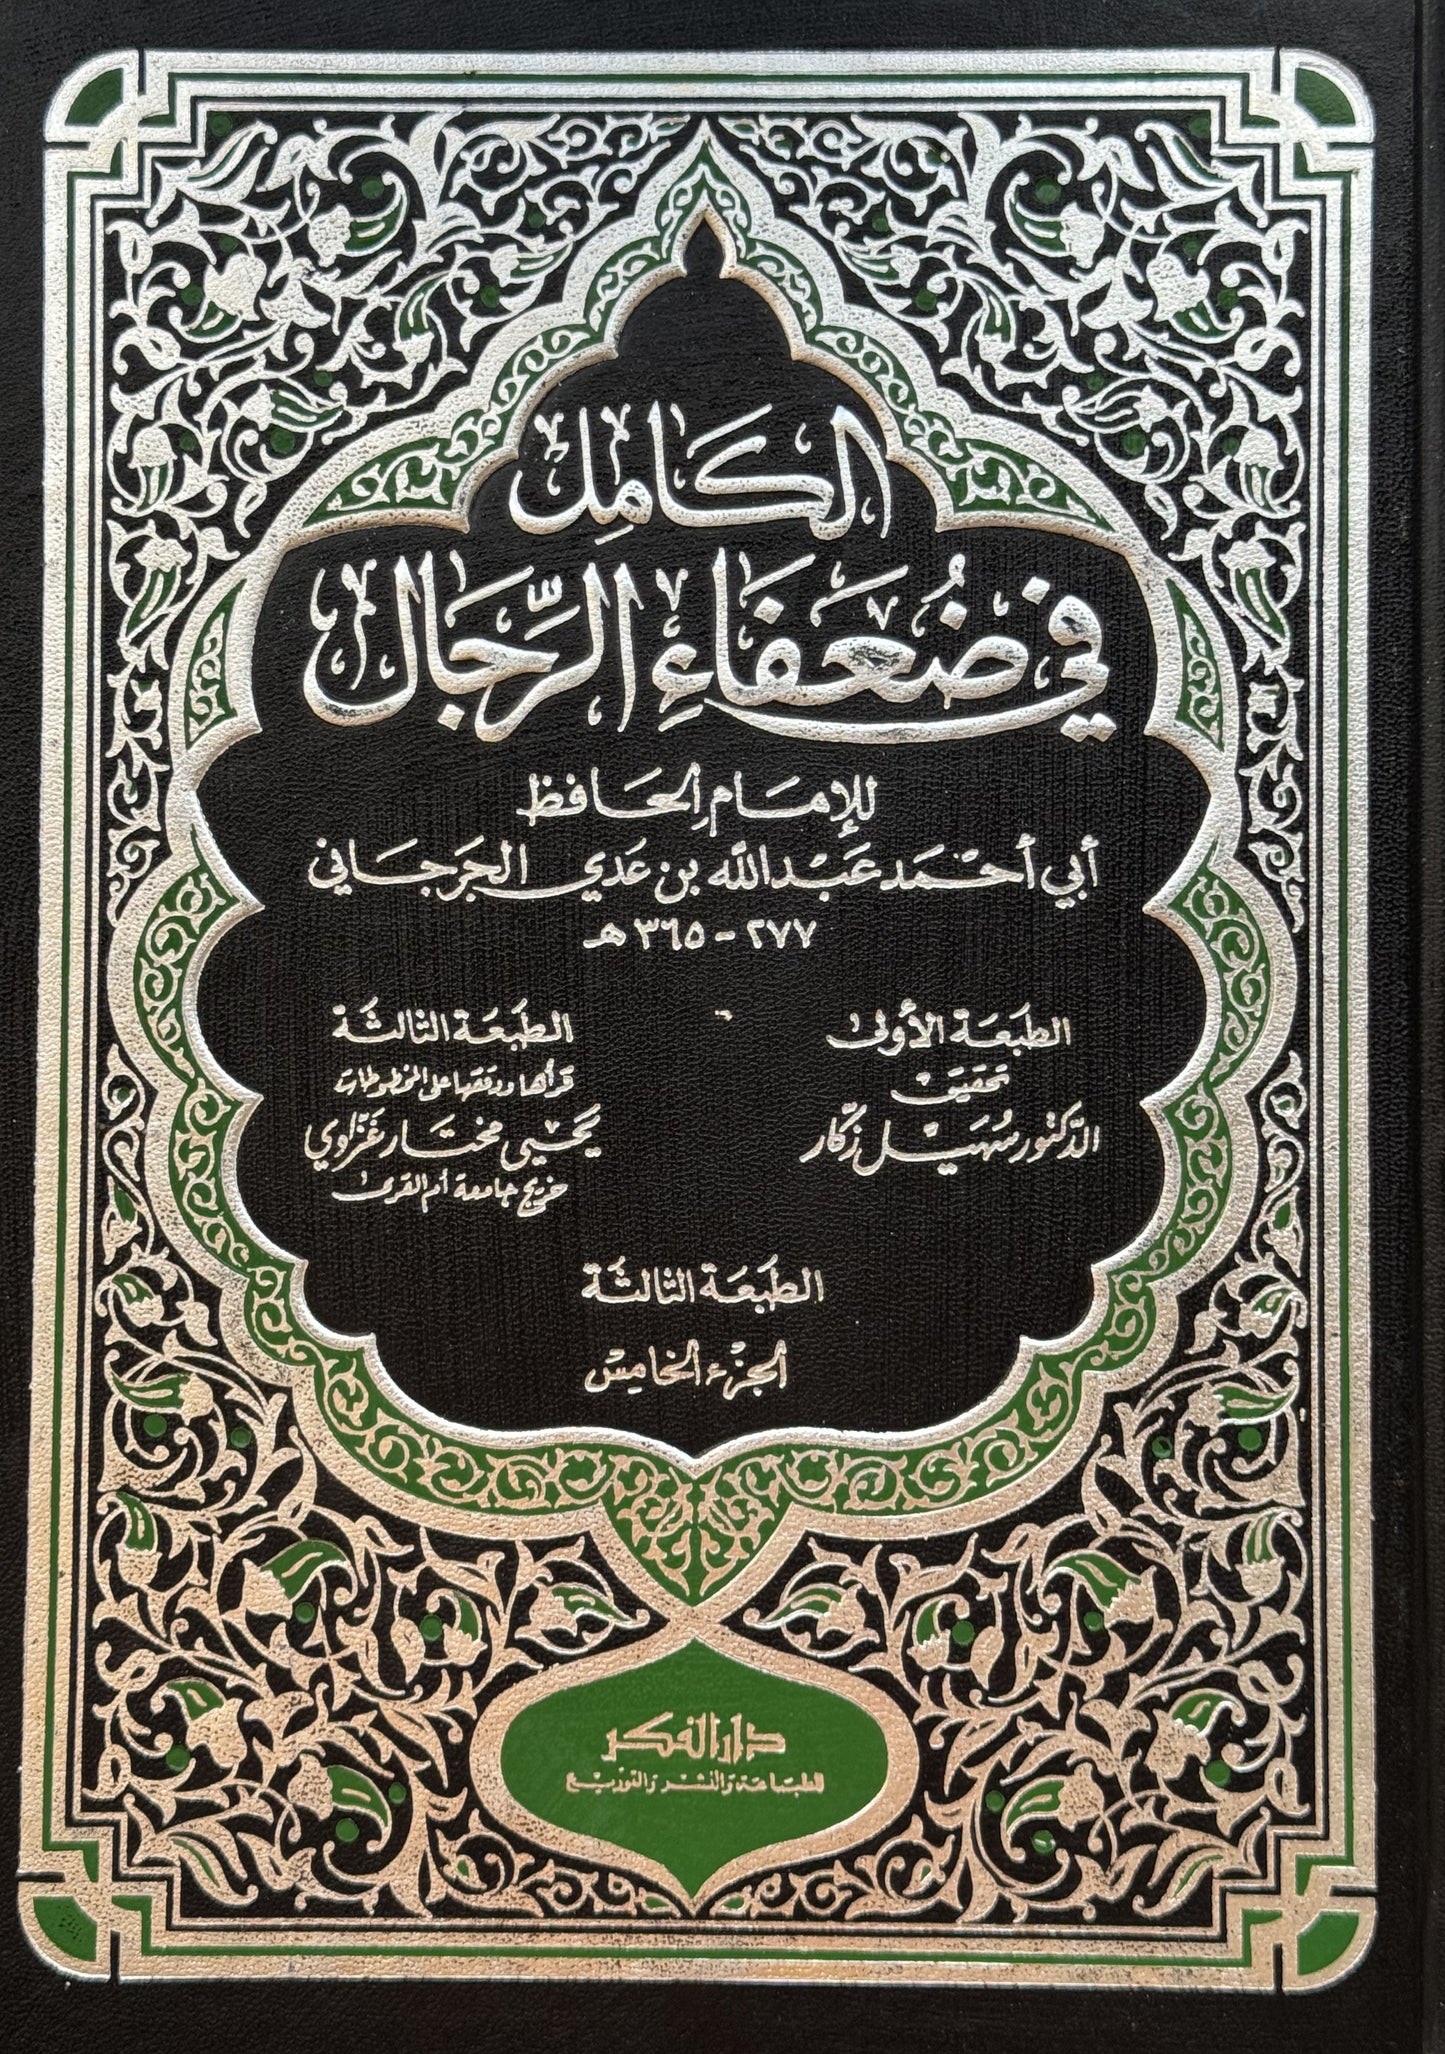 الكامل
في ضُعَفَاءِ الرِّجَال
للإمام الحافظ
أبي أحمد عبد الله بن عدي الجرجاني
٢٧٧ - ٣٦٥ هـ
الطبعة الأولى
تحقيق
الدكتور سهيل زكار
الطبعة الثالثة
قرأها ودققها على المخطوطات
يحيى مختار غزاوي
خريج جامعة أم القرى
الطبعة الثالثة
الجزء الخامس
دار الفكر
للطباعة والنشر والتوزيع